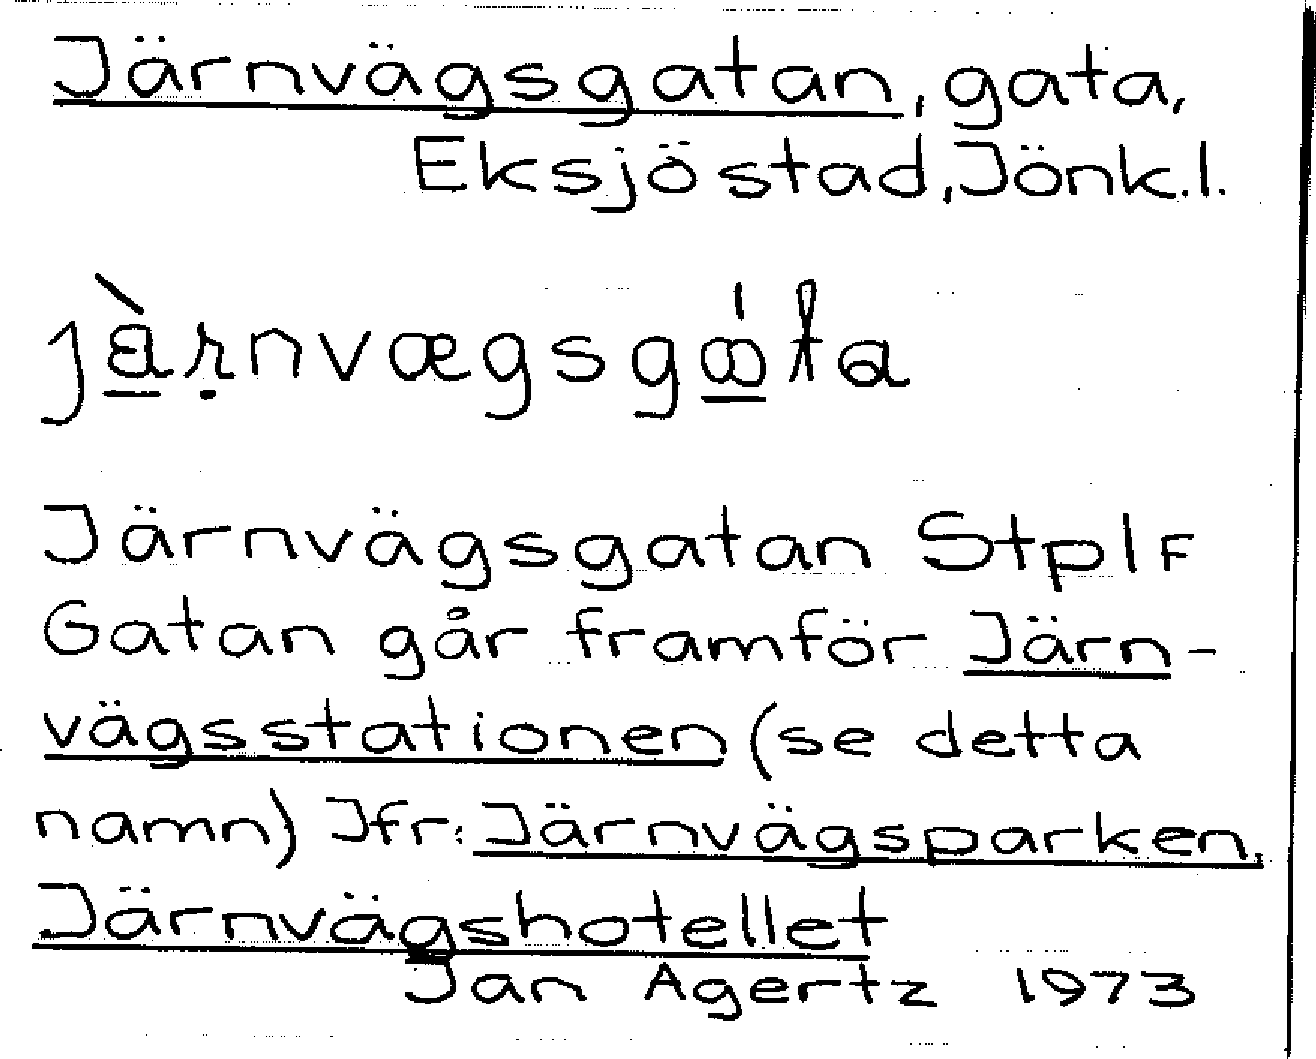 Järnvägsgatan, gata,
Eksjö stad, Jönk.l.
Järnvägsgatan Stpl F
Gatan går framför Järn-
vägsstationen (se detta
namn) Jfr: Järnvägsparken,
Järnvägshotellet
Jan Agertz 1973